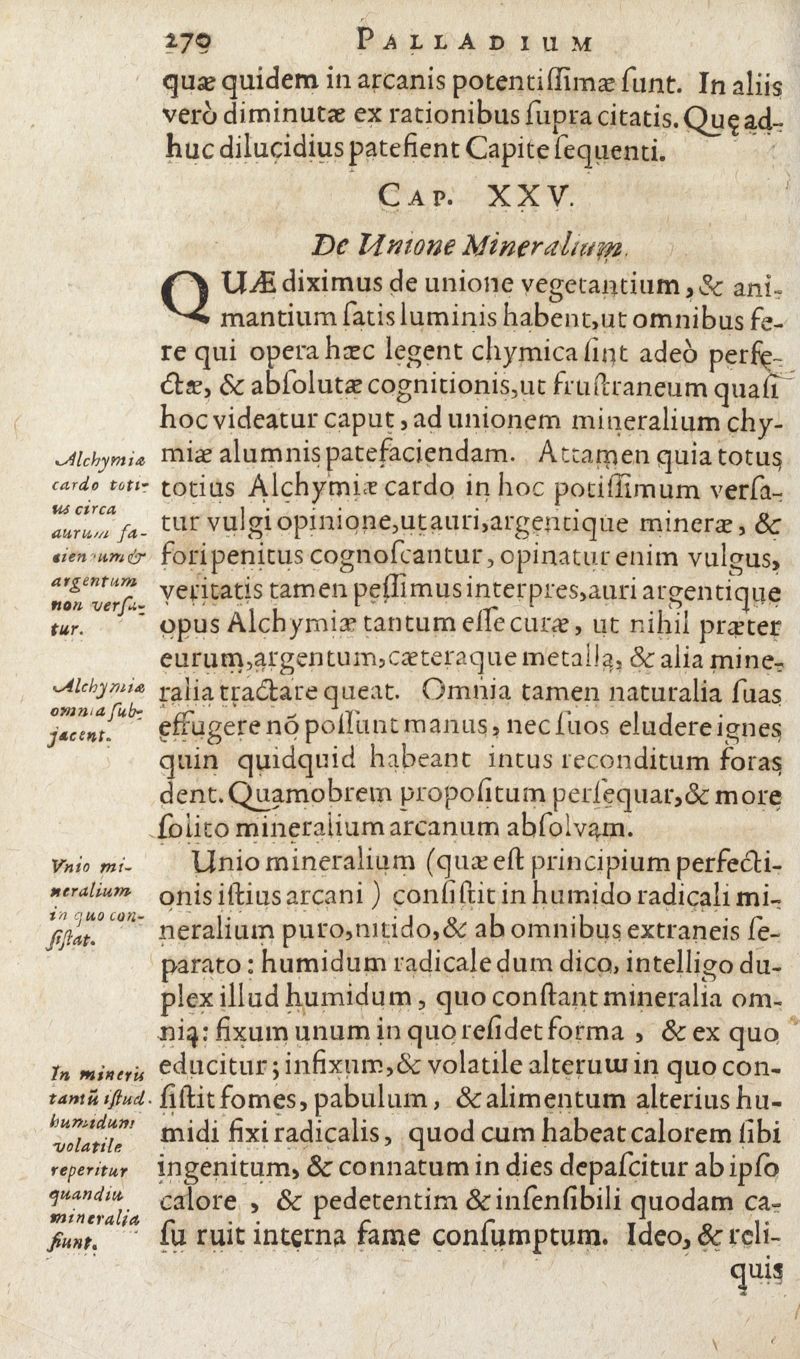 270 PALLADIUM
quæ quidem in arcanis potentiſſimæ ſunt. In aliis
verò diminutæ ex rationibus ſupra citatis. Quę ad-
huc dilucidius patefient Capite ſequenti.
CAP. XXV.
De Unione Mineralium.
QUÆ diximus de unione vegetantium, & ani-
mantium ſatis luminis habent, ut omnibus fe-
re qui opera hæc legent chymica ſint adeò perfe-
ctæ, & abſolutæ cognitionis, ut fruſtraneum quaſi
hoc videatur caput, ad unionem mineralium chy-
miæ alumnis patefaciendam. Attamen quia totus
totius Alchymiæ cardo in hoc potiſſimum verſa-
tur vulgi opinione, ut auri, argentique mineræ, &
fori penitus cognoſcantur, opinatur enim vulgus,
veritatis tamen peſſimus interpres, auri argentique
opus Alchymiæ tantum eſſe curæ, ut nihil præter
eurum, argentum, cæteraque metalla, & alia mine-
ralia tractare queat. Omnia tamen naturalia ſuas
effugere nõ poſſunt manus, nec ſuos eludere ignes
quin quidquid habeant intus reconditum foras
dent. Quamobrem propoſitum perſequar, & more
ſolito mineralium arcanum abſolvam.
Unio mineralium (quæ eſt principium perfecti-
onis iſtius arcani) conſiſtit in humido radicali mi-
neralium puro, nitido, & ab omnibus extraneis ſe-
parato: humidum radicale dum dico, intelligo du-
plex illud humidum, quo conſtant mineralia om-
niq: fixum unum in quo reſidet forma, & ex quo
educitur; infixum, & volatile alterum in quo con-
ſiſtit fomes, pabulum, & alimentum alterius hu-
midi fixi radicalis, quod cum habeat calorem ſibi
ingenitum, & connatum in dies depaſcitur ab ipſo
calore, & pedetentim & inſenſibili quodam ca-
ſu ruit interna fame conſumptum. Ideo, & reli-
quis
Alchymiæ
cardo toti-
us circa
aurum fa-
ciendum &
argentum
non verſa-
tur.
Alchymiæ
omnia ſub-
jacent.
Vnio mi-
neralium
in quo con-
ſiſtat.
In mineris
tantũ iſtud
humidum
volatile
reperitur
quandiu
mineralia
fiunt.